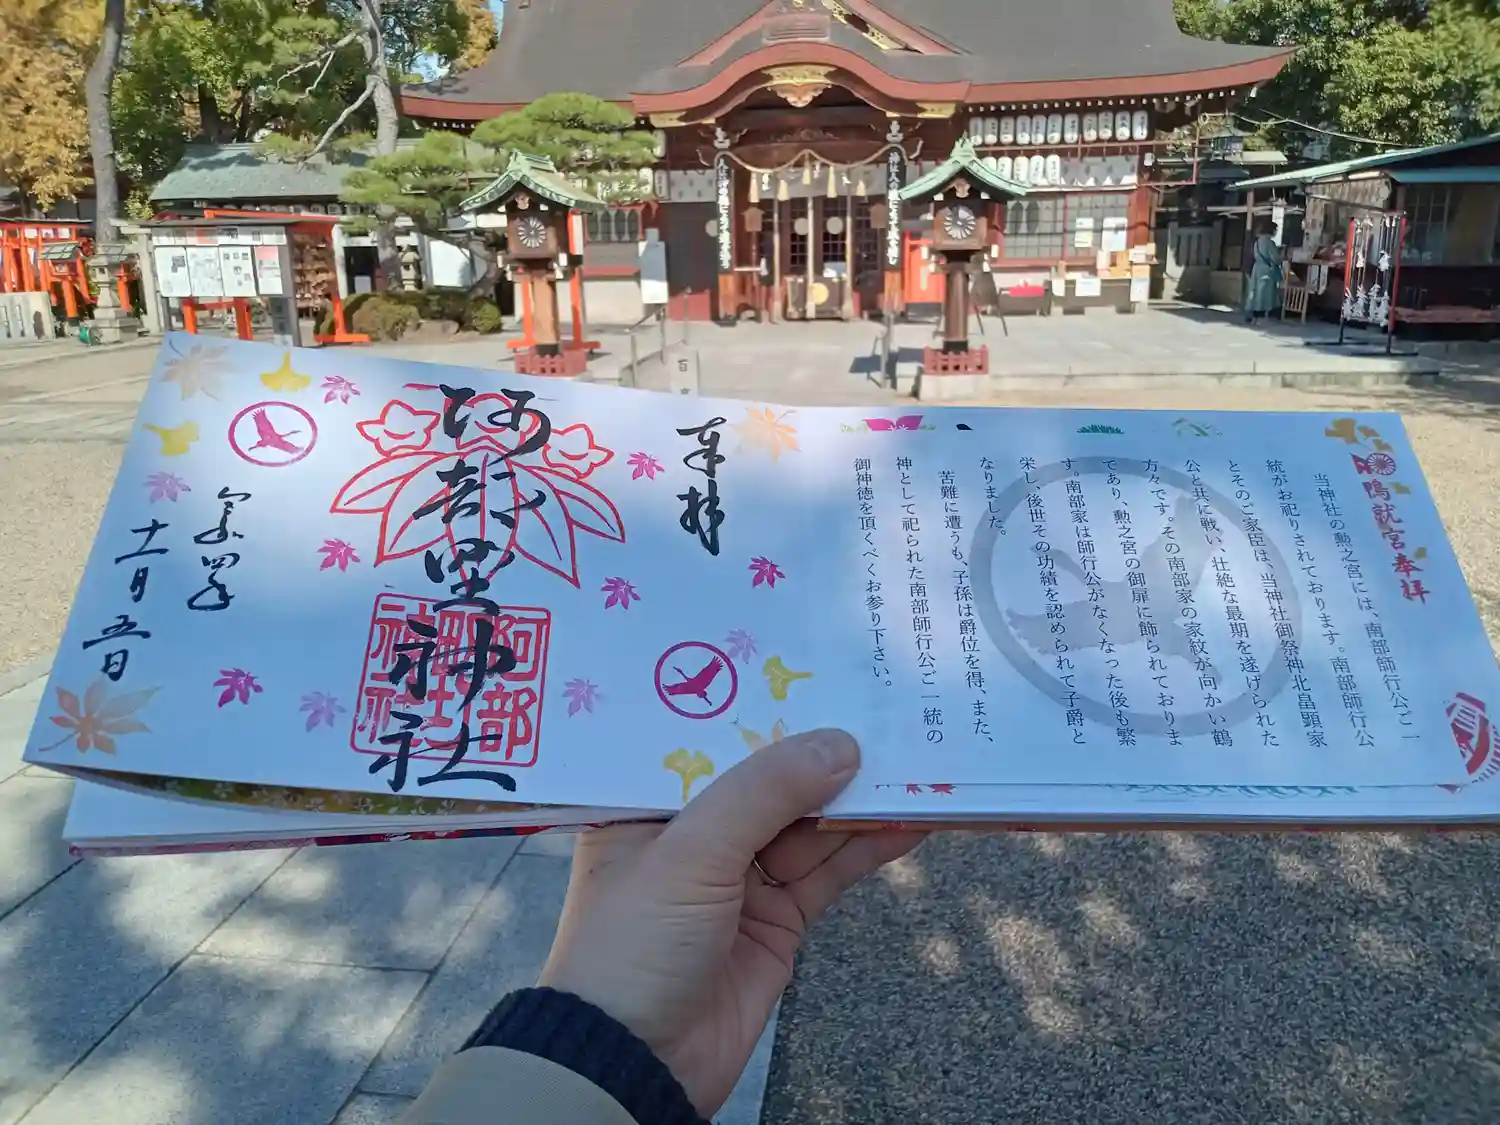 当神社の勲之宮には、南部師行公ご一
統がお祀りされております。南部師行公
とそのご家臣は、当神社御祭神北畠顕家
公と共に戦い、壮絶な最期を遂げられた
方々です。その南部家の家紋が向かい鶴
であり、勲之宮の御扉に飾られておりま
す。南部家は師行公がなくなった後も繁
栄し、後世その功績を認められて子爵と
なりました。
苦難に遭うも、子孫は爵位を得、また、
神として祀られた南部師行公ご一統の
御神徳を頂くべくお参り下さい。
奉拝
阿部野神社
阿部
神社
令和四年
十一月五日